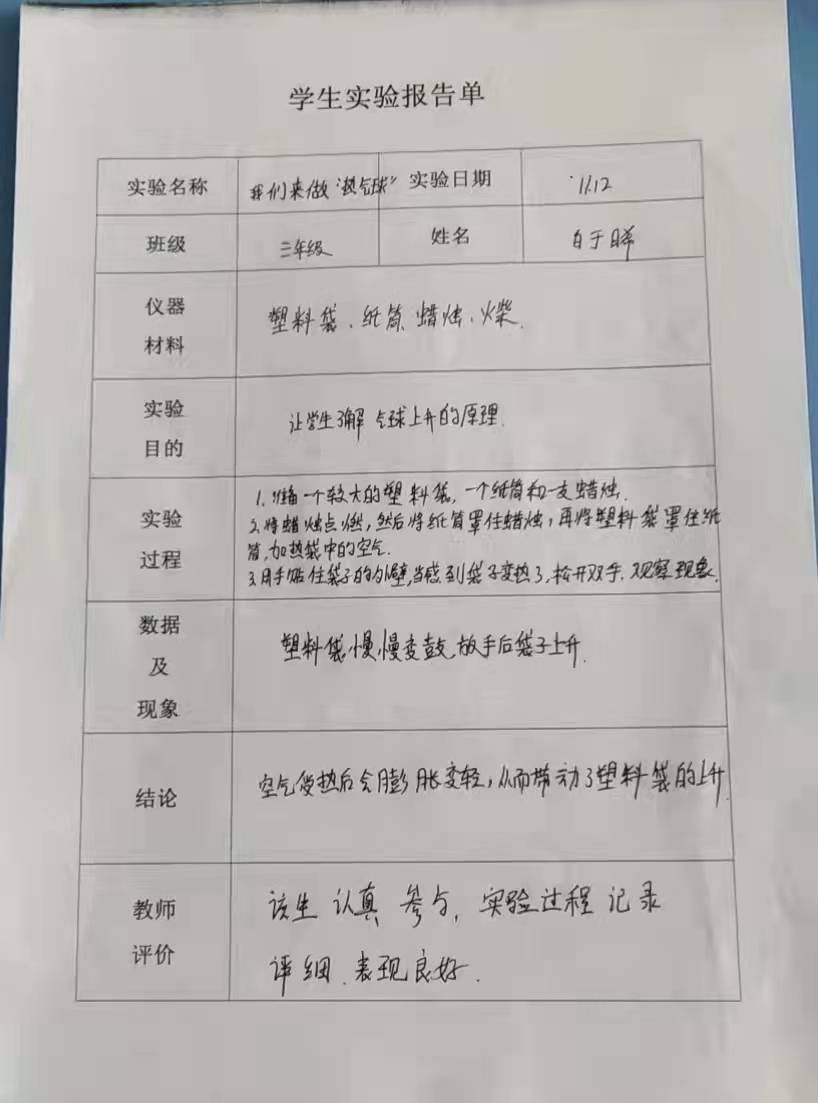 学生实验报告单
实验名称 我们来做“热气球” 实验日期 11.12
班级 三年级 姓名 白于晞
仪器
材料
塑料袋、纸筒、蜡烛、火柴.
实验
目的
让学生了解气球上升的原理.
实验
过程
1.准备一个较大的塑料袋,一个纸筒和一支蜡烛.
2.将蜡烛点燃,然后将纸筒罩住蜡烛,再将塑料袋罩住纸
筒,加热袋中的空气.
3.用手贴住袋子的外壁,当感到袋子变热了,松开双手.观察现象.
数据
及
现象
塑料袋慢慢变鼓,放手后袋子上升.
结论
空气受热后会膨胀变轻,从而带动了塑料袋的上升.
教师
评价
该生认真参与,实验过程记录
详细.表现良好.